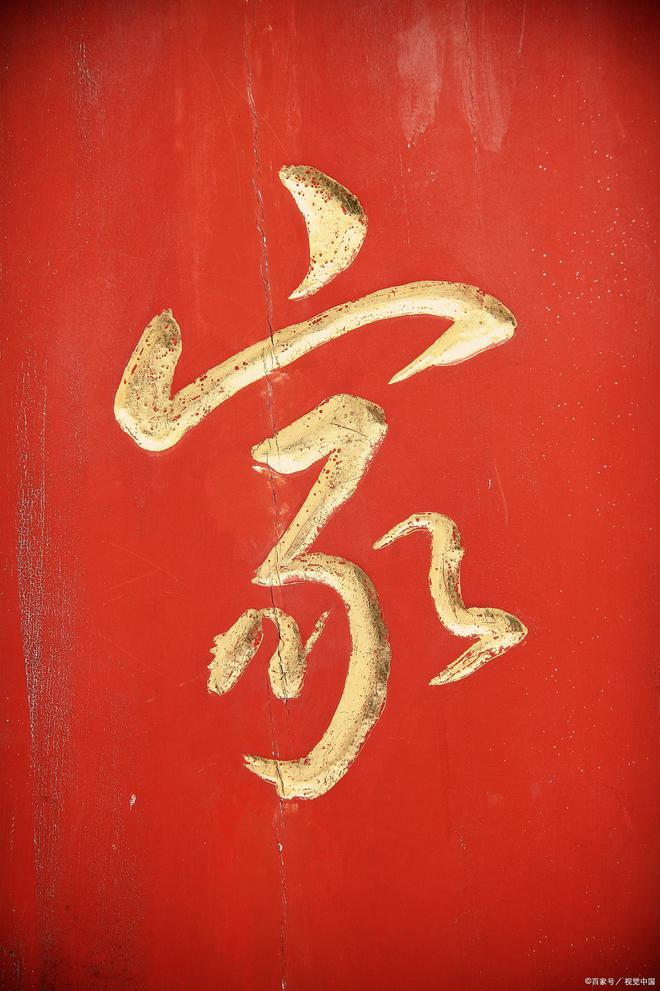 家
©百家号／视觉中国